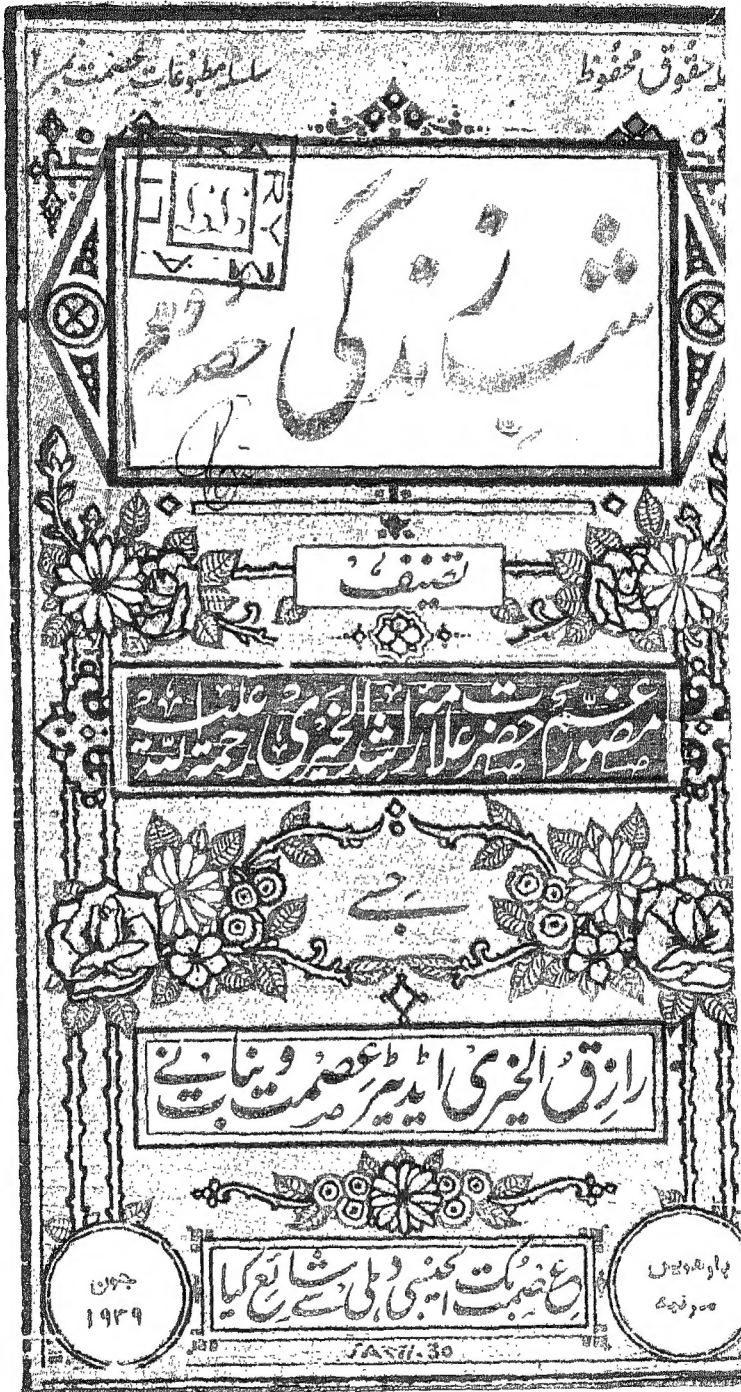 حقوق محفوظ
سلسلہ مطبوعات عصمت نمبر
LIBRARY
شب زندگی
حصہ دوم
تصنیف
مصور غم حضرت علامہ راشد الخیری رحمۃ اللہ علیہ
جسے
رازق الخیری ایڈیٹر عصمت و بنات نے
عصمت بک ایجنسی دہلی سے شائع کیا
جون
۱۹۳۹
مرتبہ